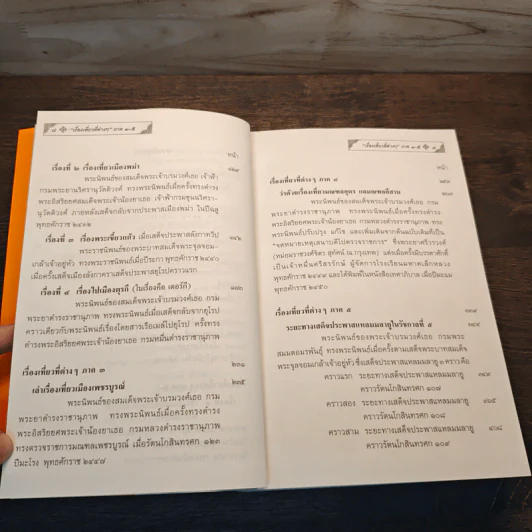 ๘ "เรื่องเที่ยวที่ต่างๆ" ภาค ๑-๕
หน้า
เรื่องที่ ๒ เรื่องเที่ยวเมืองพม่า
พระนิพนธ์ของสมเด็จพระเจ้าบรมวงศ์เธอ เจ้าฟ้า
กรมพระยานริศรานุวัดติวงศ์ ทรงพระนิพนธ์เมื่อครั้งทรงดำรง
พระอิสริยยศสมเด็จพระเจ้าน้องยาเธอ เจ้าฟ้ากรมขุนนริศรา-
นุวัดติวงศ์ ภายหลังเสด็จกลับจากประพาสเมืองพม่า ในปีฉลู
พุทธศักราช
เรื่องที่ ๓ เรื่องพระเขี้ยวแก้ว เมื่อเสด็จประพาสลังกาทวีป
พระราชนิพนธ์ของพระบาทสมเด็จพระจุลจอม-
เกล้าเจ้าอยู่หัว ทรงพระราชนิพนธ์เมื่อปีระกา พุทธศักราช ๒๔๔๐
เมื่อครั้งเสด็จเมืองลังกาคราวเสด็จประพาสยุโรปคราวแรก
เรื่องที่ ๔ เรื่องไปเมืองตุรกี (ในเรื่องคือ เตอร์กี)
พระนิพนธ์ของสมเด็จพระเจ้าบรมวงศ์เธอ กรม
พระยาดำรงราชานุภาพ ทรงพระนิพนธ์เมื่อเสด็จกลับจากยุโรป
คราวเดียวกับพระนิพนธ์เรื่องโดยสารเรือเมล์ไปยุโรป ครั้งทรง
ดำรงพระอิสริยยศพระเจ้าน้องยาเธอ กรมหมื่นดำรงราชานุภาพ
เรื่องเที่ยวที่ต่างๆ ภาค ๓ ๒๓๑
เล่าเรื่องเที่ยวเมืองเพชรบูรณ์ ๒๓๕
พระนิพนธ์ของสมเด็จพระเจ้าบรมวงศ์เธอ กรม
พระยาดำรงราชานุภาพ ทรงพระนิพนธ์เมื่อครั้งทรงดำรง
พระอิสริยยศพระเจ้าน้องยาเธอ กรมหลวงดำรงราชานุภาพ
ทรงตรวจราชการมณฑลเพชรบูรณ์ เมื่อรัตนโกสินทรศก ๑๒๓
ปีมะโรง พุทธศักราช ๒๔๔๗
"เรื่องเที่ยวที่ต่างๆ" ภาค ๑-๕ ๙
หน้า
เรื่องเที่ยวที่ต่าง ๆ ภาค ๔
ว่าด้วยเรื่องเที่ยวมณฑลอุดร แลมณฑลอีสาน
พระนิพนธ์ของสมเด็จพระเจ้าบรมวงศ์เธอ กรม
พระยาดำรงราชานุภาพ ทรงพระนิพนธ์เมื่อครั้งทรงดำรง
พระอิสริยยศพระเจ้าน้องยาเธอ กรมหลวงดำรงราชานุภาพ ทรง
พระนิพนธ์ปรับปรุง แก้ไข และเพิ่มเติมจากต้นฉบับเดิมที่เป็น
"จดหมายเหตุเสนาบดีไปตรวจราชการ" ซึ่งพระยาศรีวรวงศ์
(หม่อมราชวงศ์จิตร สุทัศน์ ณ กรุงเทพ) แต่งเมื่อครั้งมีบรรดาศักดิ์
เป็นเจ้าหมื่นศรีสรรักษ์ ผู้จัดการโรงเรียนมหาดเล็กหลวง
พุทธศักราช ๒๔๔๙ และได้พิมพ์ในหนังสือเทศาภิบาล เมื่อปีมะแม
พุทธศักราช ๒๔๕๐
เรื่องเที่ยวที่ต่าง ๆ ภาค ๕
ระยะทางเสด็จประพาสแหลมมลายูในรัชกาลที่ ๕
พระนิพนธ์ของสมเด็จพระเจ้าบรมวงศ์เธอ กรมพระ
สมมตอมรพันธุ์ ทรงพระนิพนธ์เมื่อครั้งตามเสด็จพระบาทสมเด็จ
พระจุลจอมเกล้าเจ้าอยู่หัว ซึ่งเสด็จประพาสแหลมมลายู ๓ คราว คือ
คราวแรก ระยะทางเสด็จประพาสแหลมมลายู
คราวรัตนโกสินทรศก ๑๐๗
คราวสอง ระยะทางเสด็จประพาสแหลมมลายู
คราวรัตนโกสินทรศก ๑๐๘
คราวสาม ระยะทางเสด็จประพาสแหลมมลายู
คราวรัตนโกสินทรศก ๑๐๙